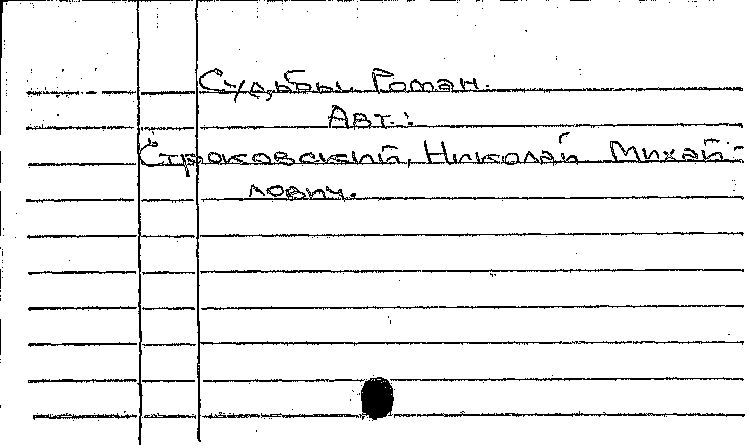 Судьбы. Роман.
Авт.:
Строковский, Николай Михай-
лович.